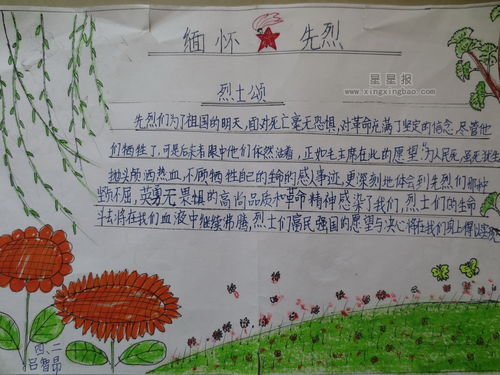 缅怀 先烈
星星报
www.xingxingbao.com
烈士颂
先烈们为了祖国的明天，面对死亡毫无恐惧，对革命充满了坚定的信念，尽管他
们牺牲了，可是后来者眼中他们依然活着，正如毛主席在此的愿望"为人民死，虽死犹生
抛头颅洒热血，不顾牺牲自己的生命的感人事迹，更深刻地体会到先烈们那种
坚贞不屈，英勇无畏惧的高尚品质和革命精神感染了我们，烈士们的生命
斗志将在我们血液中继续沸腾，烈士们富民强国的愿望与决心将在我们身上得以实现
四、二
吕智昂